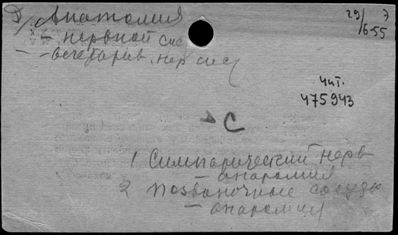 Анатомия
– нервной сис
– вегетатив. нер сис
29/ э
/6-55
чит.
475943
С
1 Симпатический нерв
– анатомия
2 Позвоночные сосуды
– анатомия